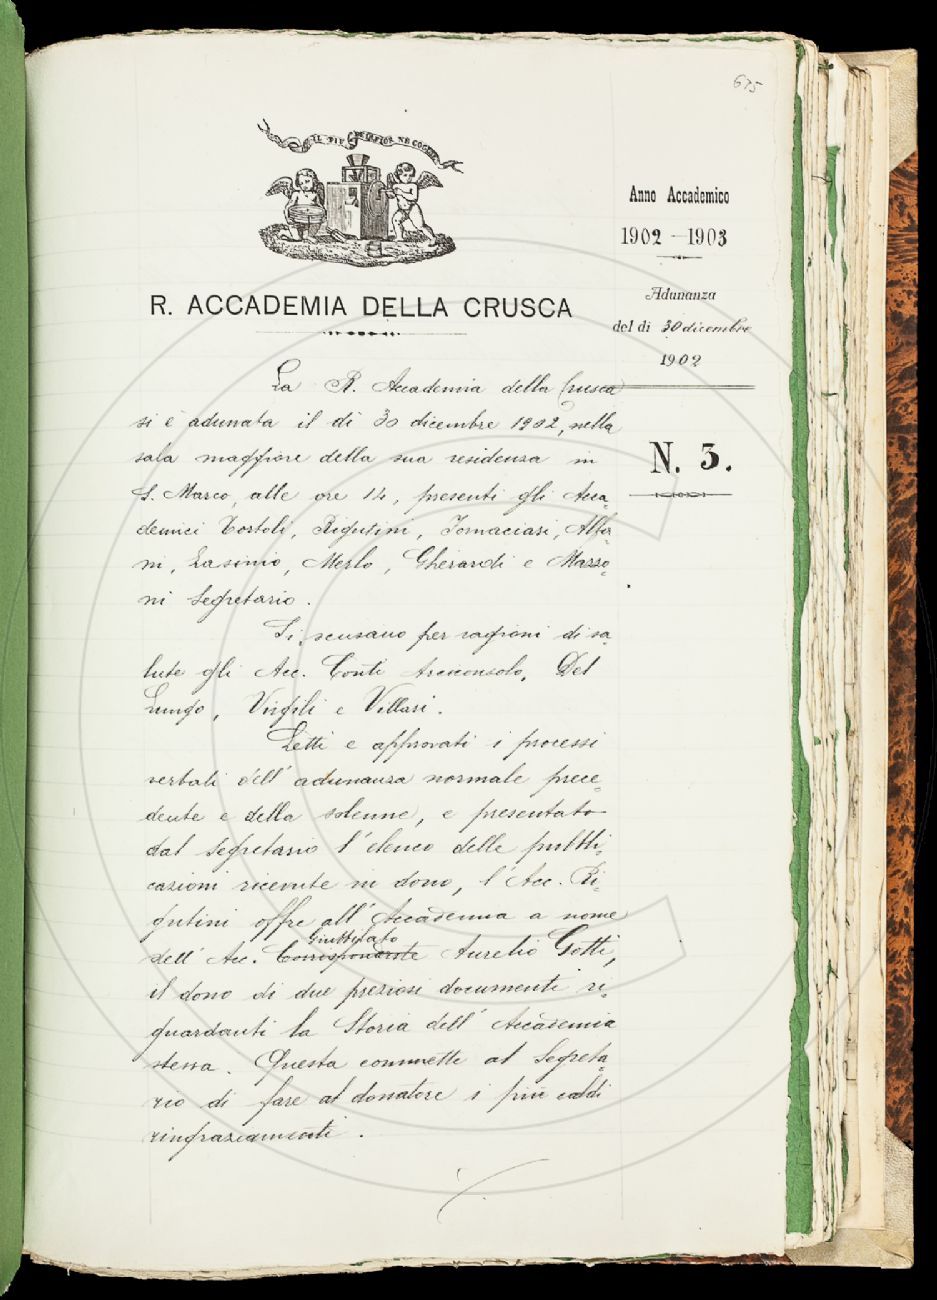 675
IL PIÙ BEL FIOR NE COGLIE
Anno Accademico
1902-1903
Adunanza
del dì 30 dicembre
1902
N. 3.
R. ACCADEMIA DELLA CRUSCA
La R. Accademia della Crusca
si è adunata il dì 30 dicembre 1902, nella
sala maggiore della sua residenza in
S. Marco, alle ore 14, presenti gli Acca=
demici Tortoli, Rigutini, Fornaciari, Alfa=
ni, Lasinio, Merlo, Gherardi e Mazzo=
ni Segretario.
Si scusano per ragioni di sa=
lute gli Acc. Conti Arciconsolo, Del
Lungo, Virgili e Villari.
Letti e approvati i processi
verbali dell'adunanza normale prece=
dente e della solenne, e presentato
dal Segretario l'elenco delle pubbli=
cazioni ricevute in dono, l'Acc. Ri=
gutini offre all'Accademia a nome
Giubbilato
dell'Acc. Corrispondente Aurelio Gotti,
il dono di due preziosi documenti ri=
guardanti la Storia dell'Accademia
stessa. Questa commette al Segreta=
rio di fare al donatore i più caldi
ringraziamenti.